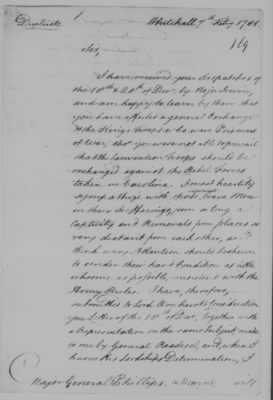 Duplicate
Whitehall 7th Feby 1781.
169
Sir,
I have received your dispatches of
the 18th & 20th of Decr. by Major
and am happy to learn by them that
you have effected a general Exchange
of the King's Troops who were Prisoners
of War, tho' you were not able to prevail
that the Convention Troops should be
exchanged against the Rebel Forces
taken in Carolina. I most heartily
sympathize with those brave Men
in their Sufferings from so long a
Captivity and Removals from places so
very distant from each other, and I
think every Attention should be shewn
to render their hard Condition as little
irksome as possible,
Army Rules. I have, therefore,
submitted to Lord Amherst's Consideration
your Letter of the 18th of Decr. together with
a Representation on the same Subject, made
to me by General Reidesel, and when I
know His Lordship's Determination, I
will
Major General Phillips. New York